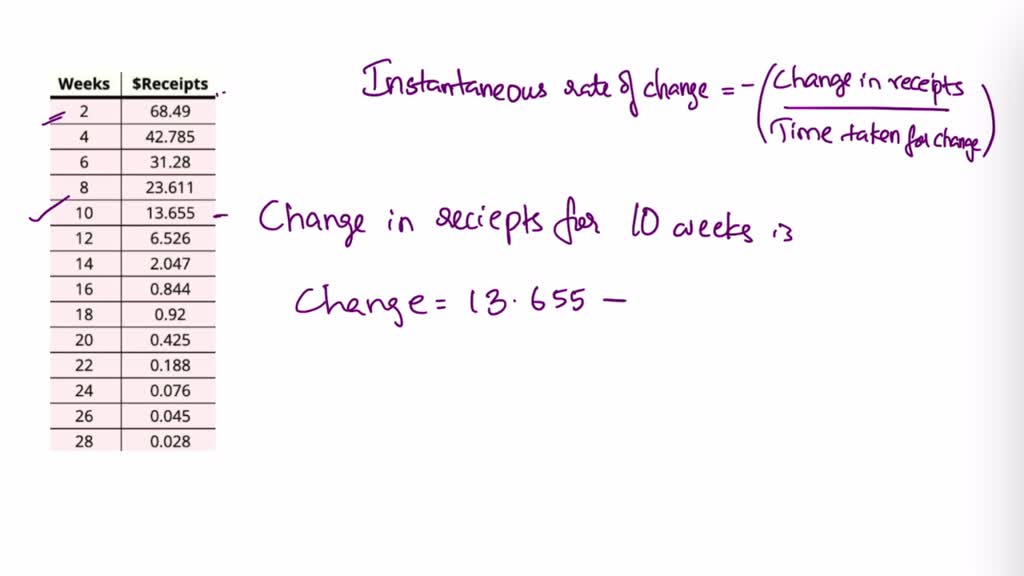 Weeks $Receipts
2 68.49
4 42.785
6 31.28
8 23.611
10 13.655
12 6.526
14 2.047
16 0.844
18 0.92
20 0.425
22 0.188
24 0.076
26 0.045
28 0.028
Instantaneous rate of change = - (Change in receipts / Time taken for change)
Change in reciepts for 10 weeks is
Change = 13.655 -